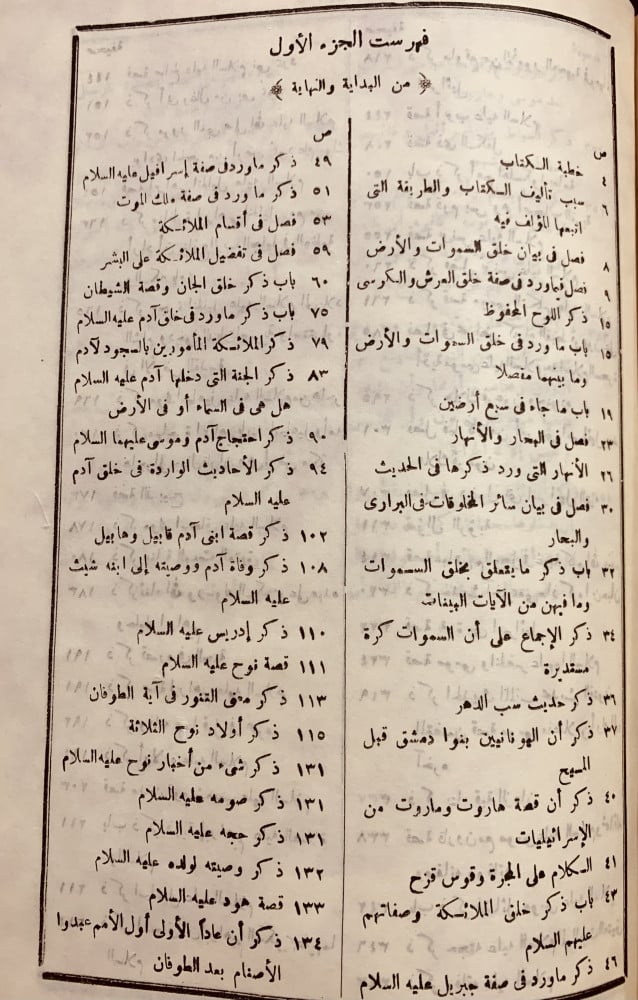 فهرست الجزء الأول
﴿ من البداية والنهاية ﴾
ص
٤ خطبة الكتاب
٦ سبب تأليف الكتاب والطريقة التى
اتبعها المؤلف فيه
٨ فصل فى بيان خلق السموات والأرض
٩ فصل فيما ورد فى صفة خلق العرش والكرسى
١٥ ذكر اللوح المحفوظ
١٥ باب ما ورد فى خلق السموات والأرض
وما بينهما مفصلا
١٩ باب ما جاء فى سبع أرضين
٢٣ فصل فى البحار والأنهار
٢٦ الأنهار التى ورد ذكرها فى الحديث
٣٠ فصل فى بيان سائر المخلوقات فى البرارى
والبحار
٣٢ باب ذكر ما يتعلق بخلق السموات
وما فيهن من الآيات البينات
٣٤ ذكر الإجماع على أن السموات كرة
مستديرة
٣٦ ذكر حديث سب الدهر
٣٧ ذكر أن اليونانيين بنوا دمشق قبل
المسيح
٤٠ ذكر أن قصة هاروت وماروت من
الإسرائيليات
٤١ الكلام على المجرة وقوس قزح
٤٣ باب ذكر خلق الملائكة وصفاتهم
عليهم السلام
٤٦ ذكر ماورد فى صفة جبريل عليه السلام
ص
٤٩ ذكر ماورد فى صفة إسرافيل عليه السلام
٥١ ذكر ما ورد فى صفة ملك الموت
٥٣ فصل فى أقسام الملائكة
٥٩ فصل فى تفضيل الملائكة على البشر
٦٠ باب ذكر خلق الجان وقصة الشيطان
٧٥ باب ذكر ماورد فى خلق آدم عليه السلام
٧٩ ذكر الملائكة المأمورين بالسجود لآدم
٨٣ ذكر الجنة التى دخلها آدم عليه السلام
هل هى فى السماء أو فى الأرض
٩٠ ذكر احتجاج آدم وموسى عليهما السلام
٩٤ ذكر الأحاديث الواردة فى خلق آدم
عليه السلام
١٠٢ ذكر قصة ابنى آدم قابيل وهابيل
١٠٨ ذكر وفاة آدم ووصيته إلى ابنه شيث
عليه السلام
١١٠ ذكر إدريس عليه السلام
١١١ قصة نوح عليه السلام
١١٣ ذكر معنى التنور فى آية الطوفان
١١٥ ذكر أولاد نوح الثلاثة
١٣١ ذكر شىء من أخبار نوح عليه السلام
١٣١ ذكر صومه عليه السلام
١٣١ ذكر حجه عليه السلام
١٣٢ ذكر وصيته لولده عليه السلام
١٣٣ قصة هود عليه السلام
١٣٤ ذكر أن عاداً الأولى أول الأمم عبدوا
الأصنام بعد الطوفان